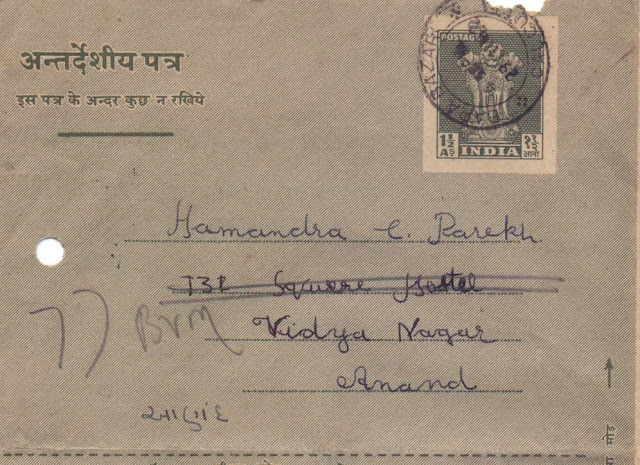 अन्तर्देशीय पत्र
इस पत्र के अन्दर कुछ न रखिये
POSTAGE
1½ As INDIA १½ आना
Hamandra C. Parekh
T31 Square Hostel
77 BVM
Vidya Nagar
Anand
આણંદ
मोड़